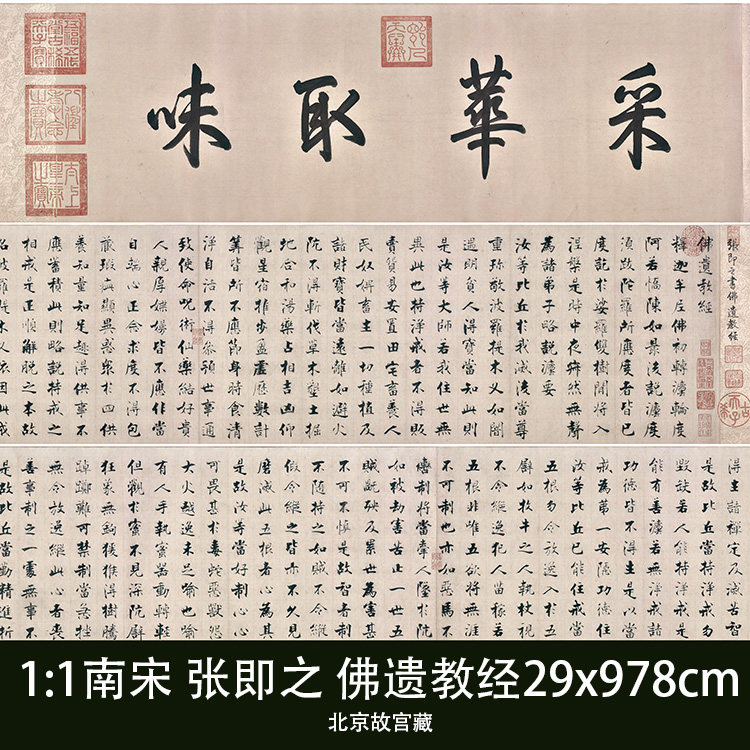 采華取味
張即之書佛遺教經
佛遺教經
釋迦牟尼佛初轉灋輪度
阿若憍陳如最後說灋度
須跋陀羅所應度者皆已
度訖於娑羅雙樹間將入
涅槃是時中夜寂然無聲
為諸弟子略說灋要
汝等比丘於我滅後當尊
重珍敬波羅提木叉如闇
遇明貧人得寶當知此則
是汝等大師若我住世無
異此也持淨戒者不得販
賣貿易安置田宅畜養人
民奴婢畜生一切種植及
諸財寶皆當遠離如避火
阬不得斬伐草木墾土掘
地合和湯藥占相吉凶仰
觀星宿推步盈虛曆數計
筭皆所不應節身時食清
淨自活不得參預世事通
致使命呪術仙藥結好貴
人親厚媟嫚皆不應作當
自端心正念求度不得包
藏瑕疵顯異惑眾於四供
養知量知足趣得供事不
應蓄積此則略說持戒之
相戒是正順解脫之本故
名波羅提木叉依因此戒
得生諸禪定及滅苦智
是故比丘當持淨戒勿
毀缺若人能持淨戒
能有善灋若無淨戒諸
功德皆不得生是以
戒為第一安隱功德住
汝等比丘已能住戒當
五根勿令放逸入於五
譬如牧牛之人執杖視
不令縱逸犯人苗稼若
五根非唯五欲將無涯
不可制也亦如惡馬不
轡制將當牽人墜於阬
如被劫害苦止一世五
賊禍殃及累世為害甚
不可不慎是故智者制
不隨持之如賊不令縱
假令縱之皆亦不久見
磨滅此五根者心為其
是故汝等當好制心心
可畏甚於毒蛇惡獸怨
大火越逸未足喻也
有人手執蜜器動轉輕
但觀於蜜不見深阬譬
狂象無鉤猿猴得樹騰
踔躑難可禁制當急挫
無令放逸縱此心者喪
善事制之一處無事不
是故比丘當勤精進折
1:1南宋 张即之 佛遗教经29x978cm
北京故宫藏